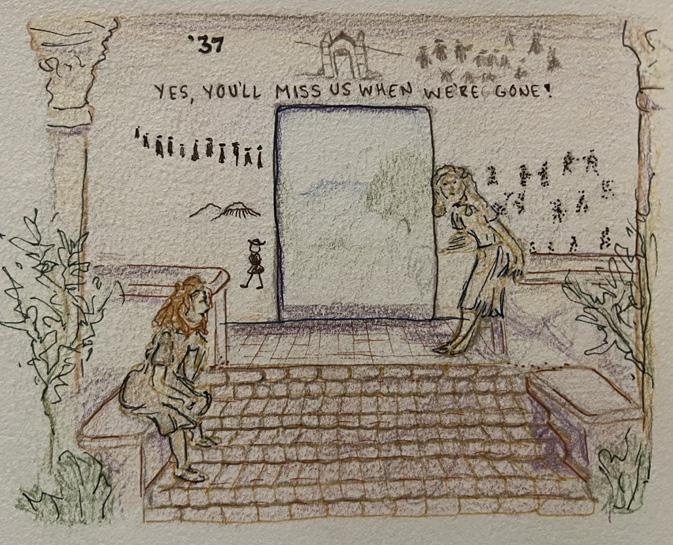 '37
YES, YOU'LL MISS US WHEN WE'RE GONE!